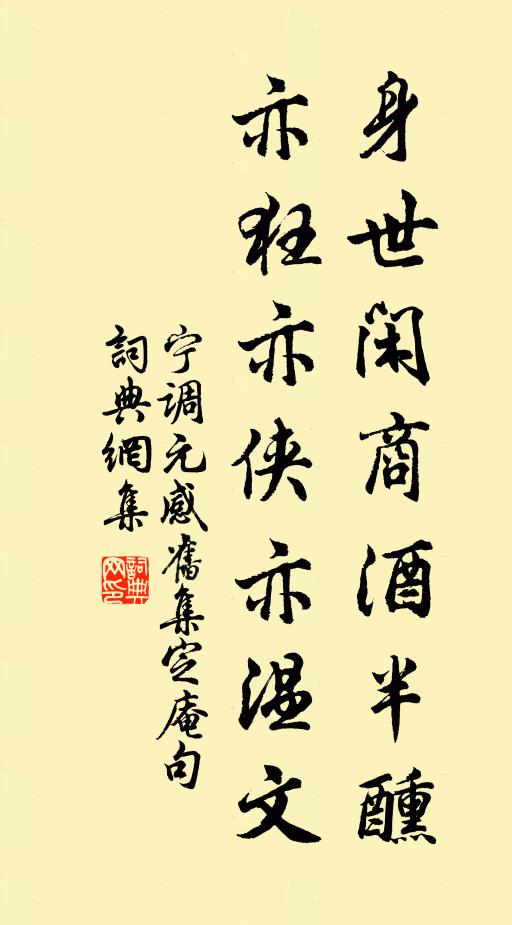 身世闲商酒半醺
亦狂亦侠亦温文
宁调元感旧集定庵句
詞典網集
詞典网印